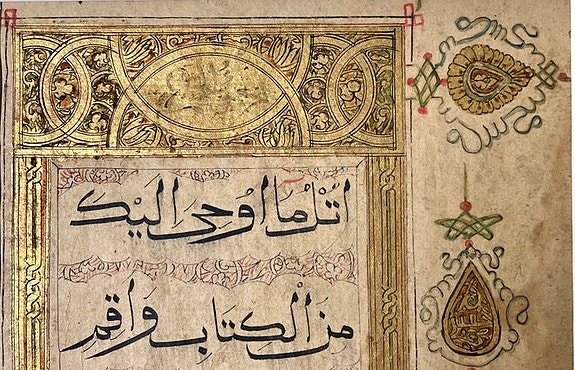 اتْلُ مَا اوْحِىَ اِلَيْكَ
مِنَ الْكِتَابِ وَاَقِمِ